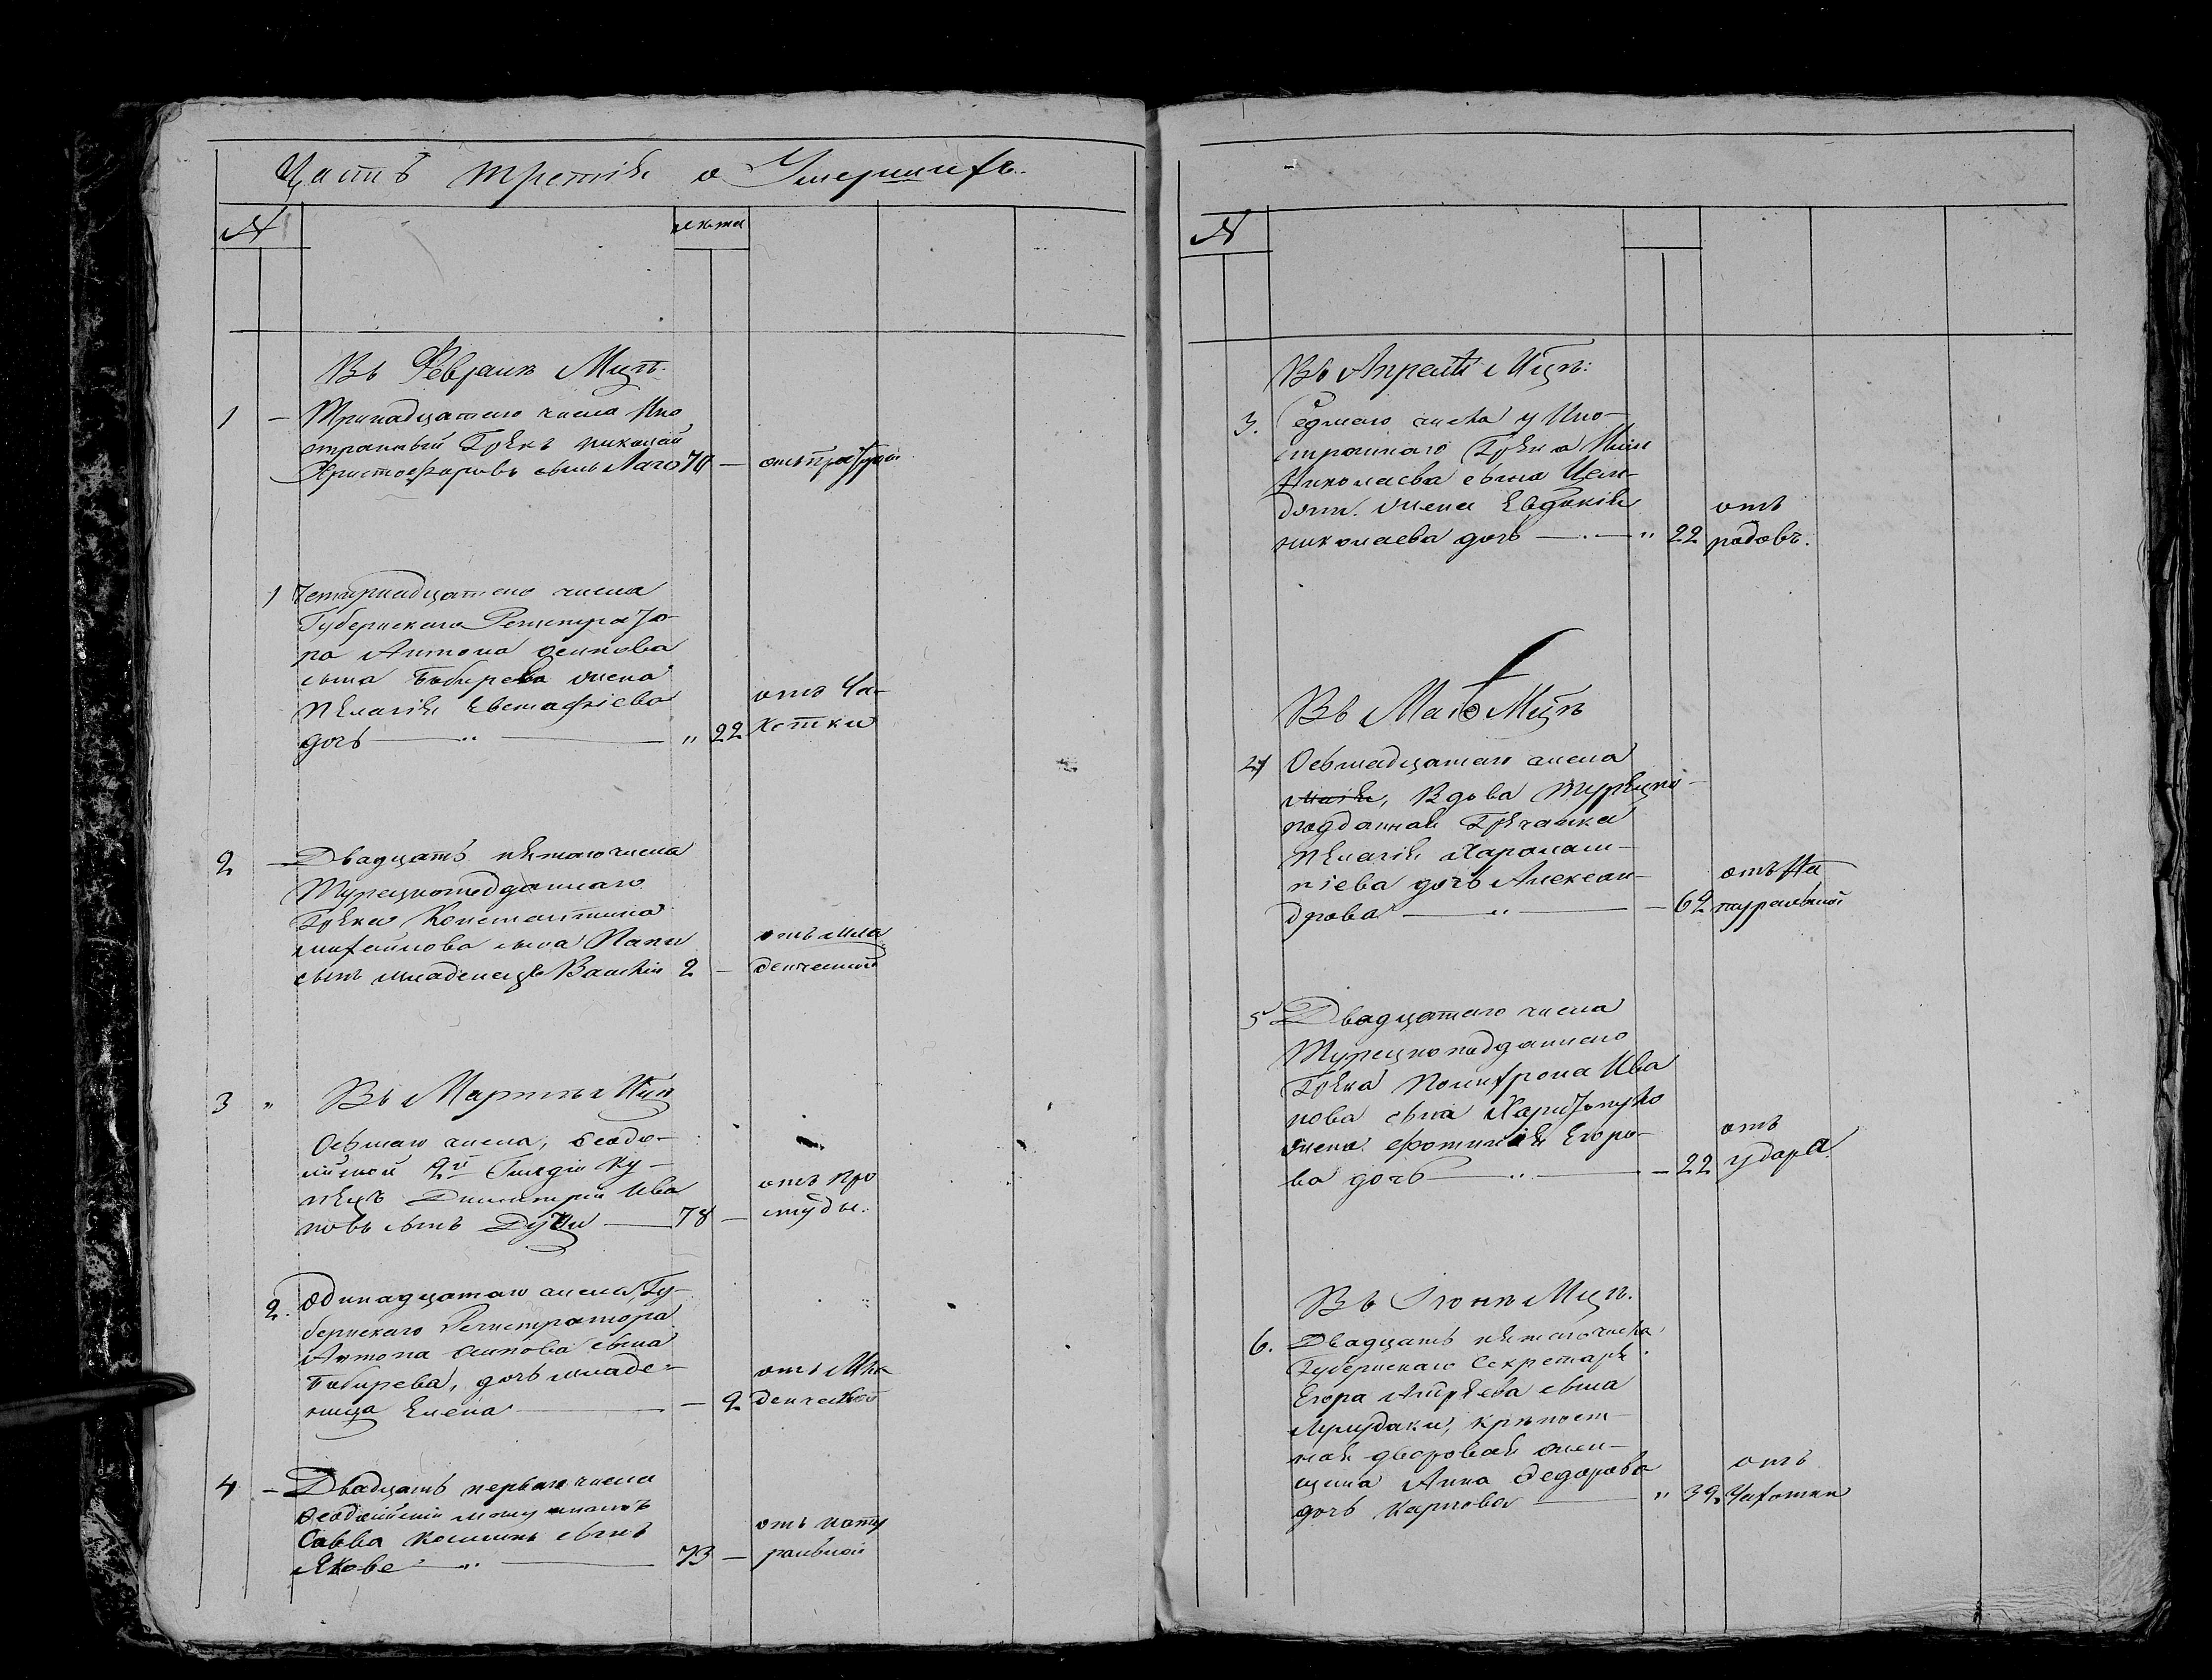 Часть третія о Умершихъ.
№ лѣта
Въ Февралѣ Мцѣ.
1 – Тринадцатаго числа Ино
странный Грекъ Николай
Христофоровъ сынъ 70 –
1 Четырнадцатаго числа
Губернскаго Регистрато-
ра Антона Осипова
сына Бибирева жена
Пелагія Евстафіева
дочь — " — " 22 отъ Ча-
хотки
2 – Двадцать пятаго числа
Турецкоподданнаго
Грека Константина
Михайлова сына Папи
сынъ младенецъ 2 – отъ мла
денческой
3 " Въ Мартѣ Мцѣ
Осьмаго числа, Ѳеодо-
сійской 2й Гилдіи Ку-
пецъ Дмитрій Ива
новъ сынъ — 78 – отъ про
студы.
2. Одинадцатаго числа, Гу-
бернскаго Регистратора
Антона Осипова сына
Бибирева, дочь младе-
ница Елена — – 2 отъ Мла
денческой
4 – Двадцать перваго числа
Ѳеодосійскій
Савва сынъ
— " — 73 – отъ нату
ральной
№
Въ Апрелѣ Мцѣ:
3. Седмаго числа у Ино-
страннаго Грека Ильи
Николаева сына
жена Евдокія
Николаева дочь — . — " 22 отъ
родовъ.
Въ Маіѣ Мцѣ
4 Осьмнадцатаго числа
Маія, Вдова Турецко-
подданная Гречанка
Пелагія Харалам-
піева дочь Алексан-
дрова — " — – 62 отъ На
туральной
5 Двадцатаго числа
Турецкоподданнаго
Грека Полихрона Ива
нова сына
жена Фотинія Егоро-
ва дочь — " — – 22 отъ
удара.
Въ Іюнѣ Мцѣ.
6. Двадцать пятаго числа,
Губернскаго Секретаря
Егора Андреева сына
крѣпост-
ная дворовая жен-
щина Анна Ѳедорова
дочь Карпова — " 39. отъ
Чахотки